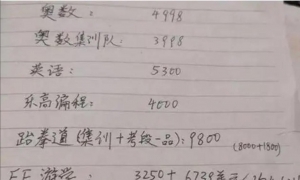 奥数: 4998
奥数集训队: 3998
英语: 5300
乐高编程: 4000
跆拳道(集训+考段一品): 9800 (8000+1800)
EF游学: 3250+6739美元